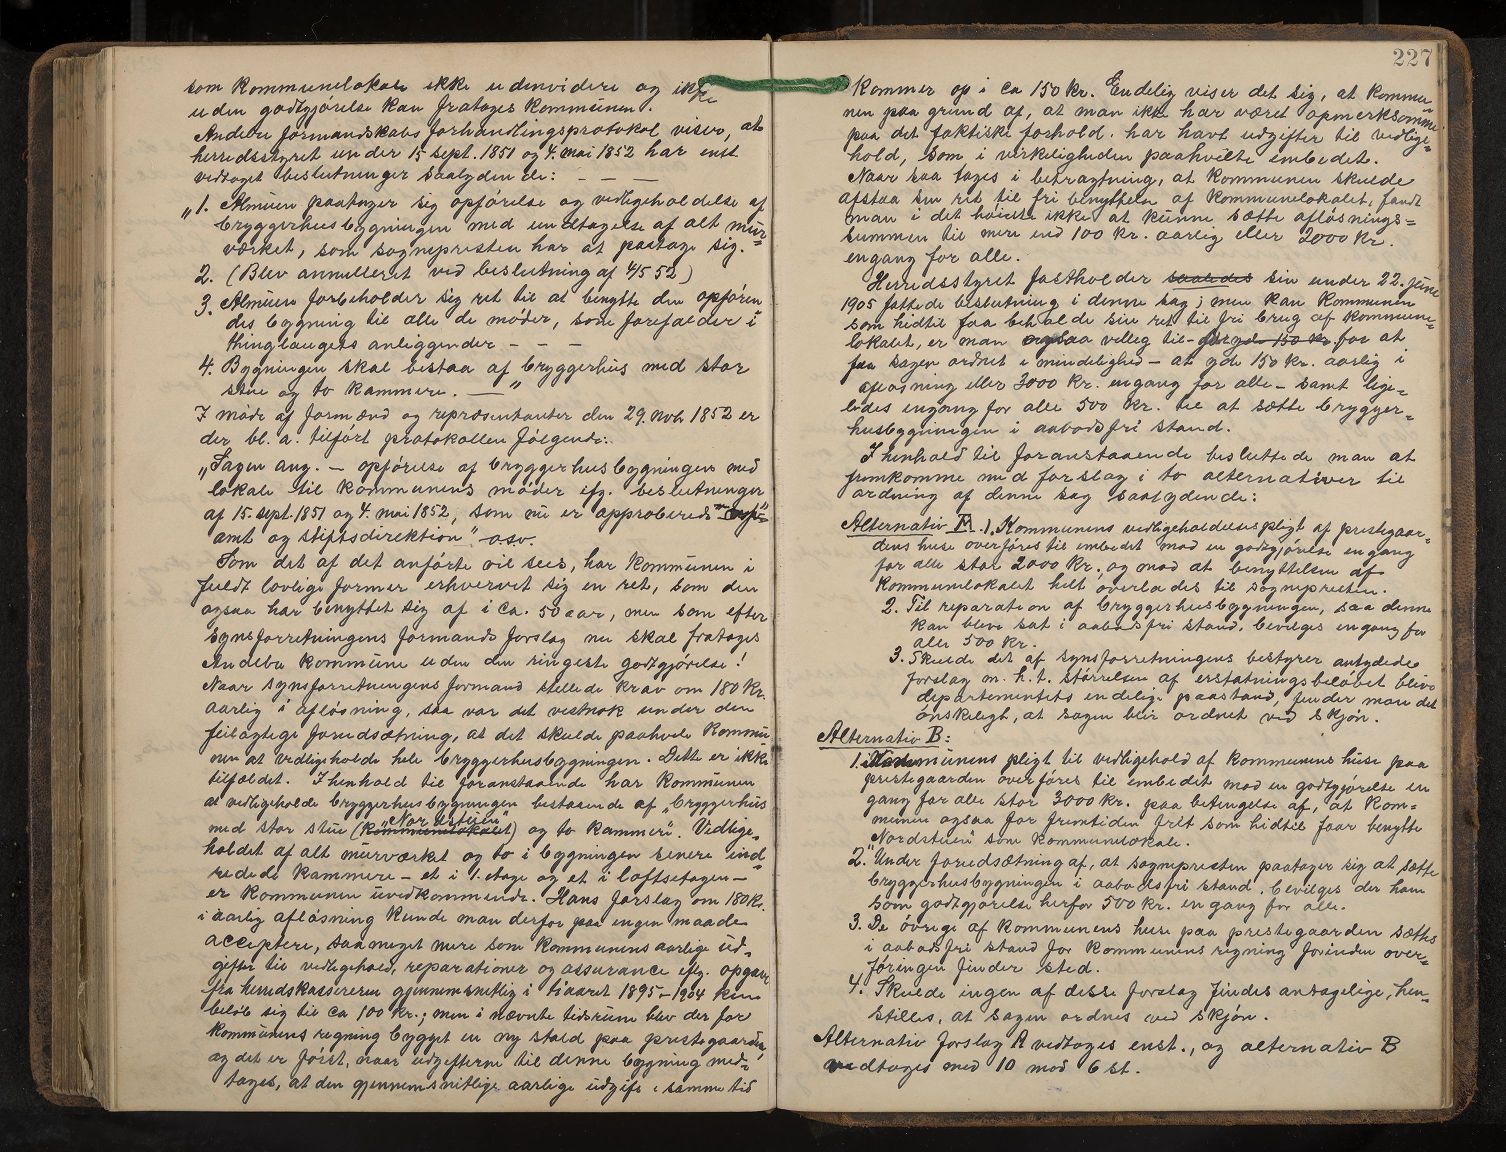 som kommunelokale ikke udenvidere og ikke
uden godtgjörelse kan fratages kommunen.
Andebu formandskabs forhandlingsprotokol viser, at
herredsstyret under 15 sept. 1851 og 4. mai 1852 har enst
vedtaget beslutninger saalydende: — — —
„1. Almuen paatager sig opförelse og vedligeholdelse af
bryggerhusbygningen med undtagelse af alt mur=
værket, som sognepresten har at paatage sig.
2. (Blev annulleret ved beslutning af 4/5 52)
3. Almuen forbeholder sig ret til at benytte den opfören
des bygning til alle de möder, som forefalder i
thinglaugets anliggender — — —
4. Bygningen skal bestaa af bryggerhus med stor
stue og to kammere. — "
I möde af formænd og repræsentanter den 29. novb 1852 er
der bl. a. tilfört protokollen fölgende:
„Sagen ang. — opförelse af bryggerhusbygningen med
lokale til kommunens möder efg. beslutninger
af 15. sept. 1851 og 4. mai 1852, som nu er approberede
amt og stiftsdirektion" osv.
Som det af det anförte vil sees, har kommunen i
fuldt lovlige former erhvervet sig en ret, som den
ogsaa har benyttet sig af i ca. 50 aar, men som efter
synsforretningens formands forslag nu skal fratages
Andebu kommune uden den ringeste godtgjörelse!
Naar synsforretningens formand stillede krav om 180 kr.
aarlig i aflösning, saa var det vistnok under den
feilagtige forudsætning, at det skulde paahvile kommu
nen at vedligeholde hele bryggerhusbygningen. Dette er ikke
tilfældet. I henhold til foranstaaende har kommunen
at vedligeholde bryggerhusbygningen bestaaende af „bryggerhus
"Nordstuen"
med stor stue (kommunelokalet) og to kammer". Vedlige=
holdet af alt murværket og to i bygningen senere ind=
redede kammere — et i 1. etage og et i loftsetagen —
er kommunen uvedkommende. Hans forslag om 180 kr.
i aarlig aflösning kunde man derfor paa ingen maade
acceptere, saameget mere som kommunens aarlige ud=
gifter til vedligehold, reparationer og assurance efg. opgave
fra herredskassereren gjennemsnitlig i tiaaret 1895–1904 kun
belöb sig til ca 100 kr.; men i nævnte tidsrum blev der for
kommunens regning bygget en ny stald paa prestegaarden,
og det er först, naar udgifterne til denne bygning med=
tages, at den gjennemsnitlige aarlige udgift i samme tid
227
kommer op i ca 150 kr. Endelig viser det sig, at kommu=
nen paa grund af, at man ikke har været opmerksomme
paa det faktiske forhold. har havt udgifter til vedlige=
hold, som i virkeligheden paahvilte embedet.
Naar saa tages i betragtning, at kommunen skulde
afstaa sin ret til fri benyttelse af kommunelokalet, fandt
man i det höieste ikke at kunne sætte aflösnings=
summen til mere end 100 kr. aarlig eller 2000 kr.
engang for alle.
Herredsstyret fastholder saaledes sin under 22. juni
1905 fattede beslutning i denne sag; men kan kommunen
som hidtil faa beholde sin ret til fri brug af kommune=
lokalet, er man ogsaa villig til – 150 kr. for at
faa sagen ordnet i mindelighed – at yde 150 kr. aarlig i
aflösning eller 3000 kr. engang for alle – samt lige=
ledes engang for alle 500 kr. til at sætte brygger=
husbygningen i aabodsfri stand.
I henhold til foranstaaende besluttede man at
fremkomme med forslag i to alternativer til
ordning af denne sag saalydende:
Alternativ A. 1. Kommunens vedligeholdelsespligt af prestegaar=
dens huse overföres til embedet mod en godtgjörelse engang
for alle stor 2000 kr. og mod at benyttelsen af
kommunelokalet helt overlades til sognepresten.
2. Til reparation af bryggerhusbygningen, saa denne
kan blive sat i aabodsfri stand, bevilges engang for
alle 500 kr.
3. Skulde det af synsforretningens bestyrer antydede
forslag m. h. t. störrelsen af erstatningsbelöbet blive
departementets endelige paastand, finder man det
önskeligt, at sagen blir ordnet ved skjön.
Alternativ B:
1. Kommunens pligt til vedligehold af kommunens huse paa
prestegaarden overföres til embedet mod en godtgjörelse en
gang for alle stor 3000 kr. paa betingelse af, at kom=
munen ogsaa for fremtiden frit som hidtil faar benytte
„Nordstuen" som kommunelokale.
2. Under forudsætning af, at sognepresten paatager sig at sætte
bryggerhusbygningen i aabodsfri stand, bevilges der ham
som godtgjörelse herfor 500 kr. engang for alle.
3. De övrige af kommunens huse paa prestegaarden sættes
i aabodsfri stand for kommunens regning forinden over=
föringen finder sted.
4. Skulde ingen af disse forslag findes antagelige, hen=
stilles, at sagen ordnes ved skjön.
Alternativ forslag A vedtoges enst., og alternativ B
vedtoges med 10 mod 6 st.